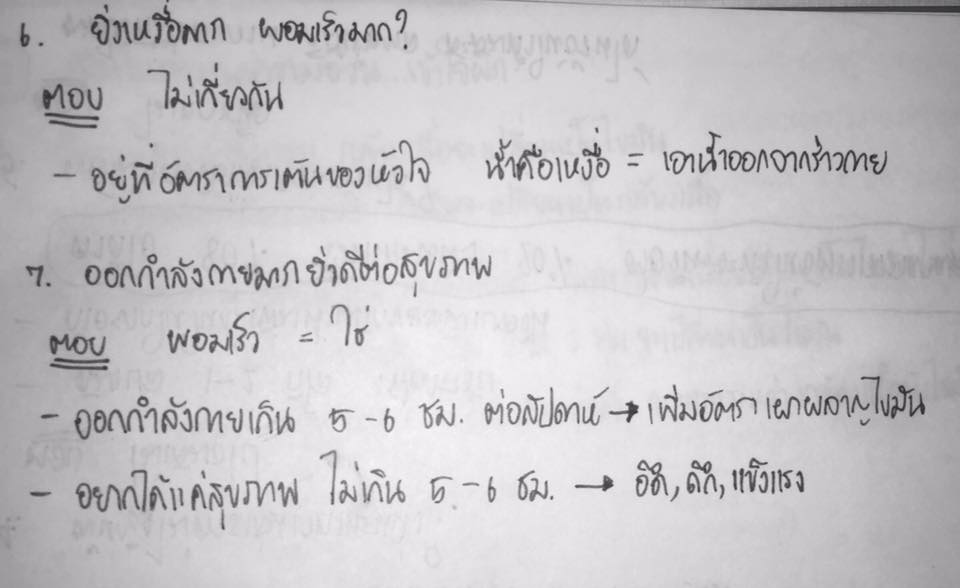 6. ยิ่งเหงื่อมาก ผอมเร็วมาก?
ตอบ ไม่เกี่ยวกัน
- อยู่ที่อัตราการเต้นของหัวใจ น้ำคือเหงื่อ = เอาน้ำออกจากร่างกาย
7. ออกกำลังกายมากยิ่งดีต่อสุขภาพ
ตอบ ผอมเร็ว = ใช่
- ออกกำลังกายเกิน 5-6 ชม. ต่อสัปดาห์ → เพิ่มอัตราเผาผลาญไขมัน
- อยากได้แค่สุขภาพ ไม่เกิน 5-6 ชม. → อึด, ถึก, แข็งแรง